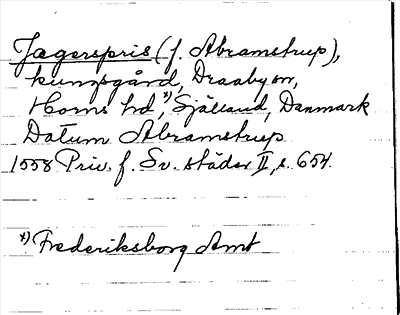 Jægerspris (f. Abramstrup),
kungsgård, Draaby sn,
Horns hd,*) Sjælland, Danmark
Datum Abramstrup
1558 Priv. f. Sv. städer II, s. 654.
*) Frederiksborg Amt